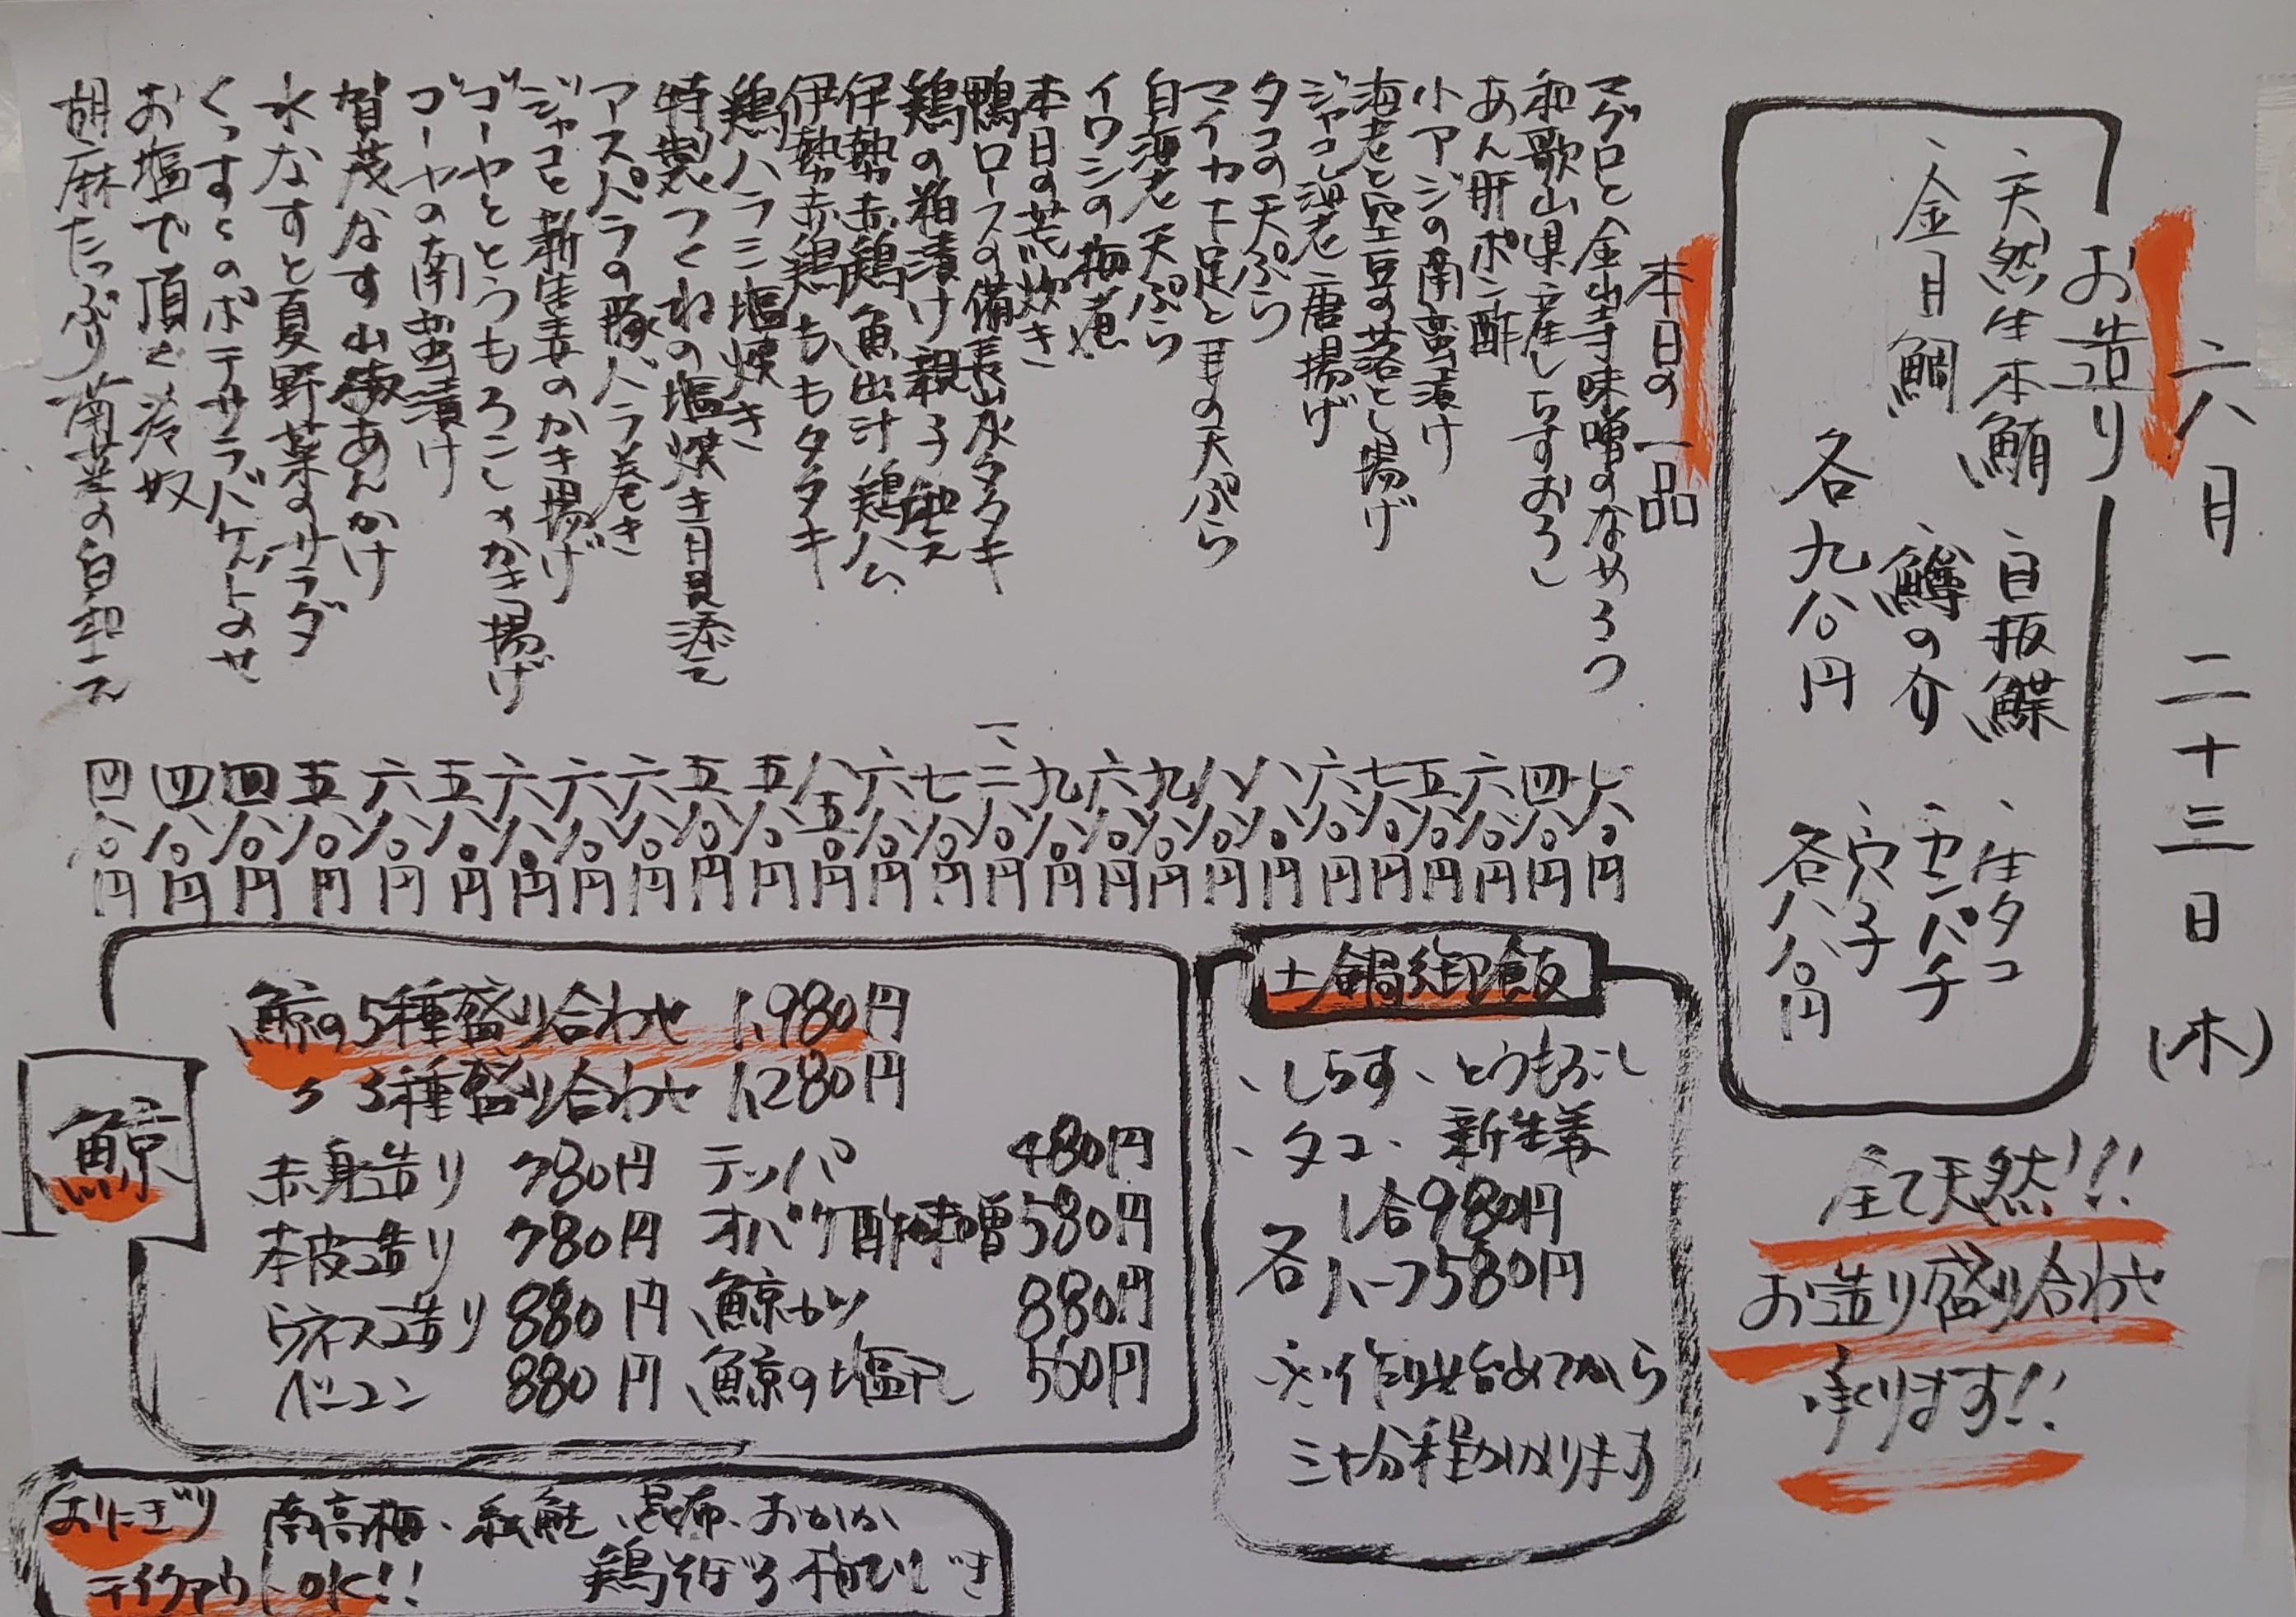 六月二十三日(木)
お造り
、天然生本鮪 、目板鰈 、生タコ
、金目鯛 、鱒の介 、カンパチ
、穴子
各九八〇円 各八八〇円
全て天然!!!
お造り盛り合わせ
承ります!!
本日の一品
マグロと金山寺味噌のなめろう 七八〇円
和歌山県産しらすおろし 四八〇円
あん肝ポン酢 六八〇円
小アジの南蛮漬け 五八〇円
海老と空豆の落とし揚げ 七八〇円
ジャコし海老唐揚げ 六八〇円
タコの天ぷら 八八〇円
マイカ下足と耳の天ぷら 八八〇円
白海老天ぷら 九八〇円
イワシの梅煮 六八〇円
本日の荒炊き 九八〇円
鴨ロースの備長山水タタキ 一、二八〇円
鶏の粕漬け親子和え 七八〇円
伊勢赤鶏魚出汁鶏ハム 六八〇円
伊勢赤鶏ももタタキ 八五〇円
鶏ハラミ塩焼き 五八〇円
特製つくねの塩焼き月見添え 五八〇円
アスパラの豚バラ巻き 六八〇円
ジャコと新生姜のかき揚げ 六八〇円
ゴーヤととうもろこしのかき揚げ 六八〇円
ゴーヤの南蛮漬け 五八〇円
賀茂なす山椒あんかけ 六八〇円
水なすと夏野菜のサラダ 五八〇円
くっすくのポテサラバケットのせ 四八〇円
お塩で頂く冷奴 四八〇円
胡麻たっぷり菊菜の白和え 四八〇円
土鍋御飯
、しらす、とうもろこし
、タコ、新生姜
各 1合980円
ハーフ580円
※作り始めてから
三十分程かかります
鯨
鯨の5種盛り合わせ 1,980円
〃 3種盛り合わせ 1,280円
赤身造り 780円 テッパ 480円
本皮造り 780円 オバケ酢味噌 580円
ウネス造り 880円 鯨カツ 880円
ベーコン 880円 鯨の塩タレ 560円
おにぎり 南高梅、紅鮭、昆布、おかか
テイクアウトOK!! 鶏そぼろ